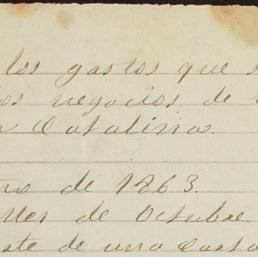 los gastos que s
os negocios de
a Catalina.
de 1863.
de Octubre
de una Carta